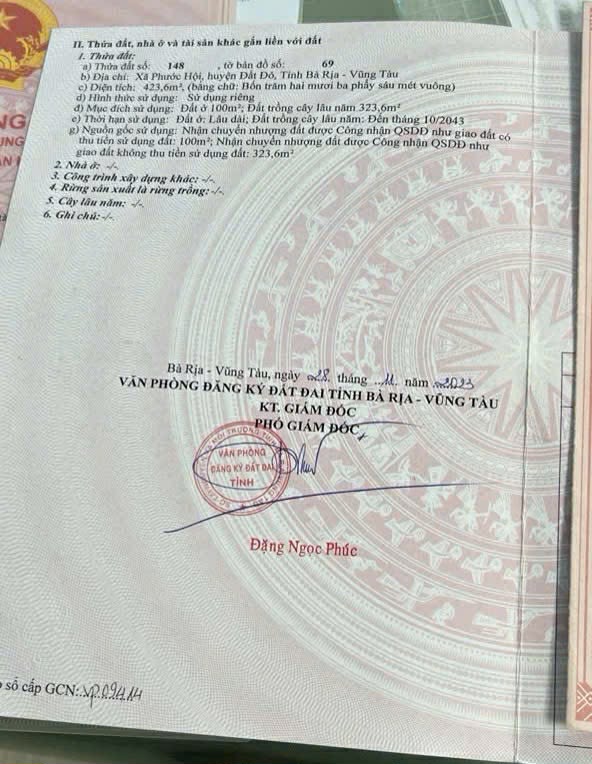 II. Thửa đất, nhà ở và tài sản khác gắn liền với đất
1. Thửa đất:
a) Thửa đất số: 148 , tờ bản đồ số: 69
b) Địa chỉ: Xã Phước Hội, huyện Đất Đỏ, Tỉnh Bà Rịa - Vũng Tàu
c) Diện tích: 423,6m², (bằng chữ: Bốn trăm hai mươi ba phẩy sáu mét vuông)
d) Hình thức sử dụng: Sử dụng riêng
đ) Mục đích sử dụng: Đất ở 100m²; Đất trồng cây lâu năm 323,6m²
e) Thời hạn sử dụng: Đất ở: Lâu dài; Đất trồng cây lâu năm: Đến tháng 10/2043
g) Nguồn gốc sử dụng: Nhận chuyển nhượng đất được Công nhận QSDĐ như giao đất có
thu tiền sử dụng đất: 100m²; Nhận chuyển nhượng đất được Công nhận QSDĐ như
giao đất không thu tiền sử dụng đất: 323,6m²
2. Nhà ở: -/-.
3. Công trình xây dựng khác: -/-.
4. Rừng sản xuất là rừng trồng: -/-.
5. Cây lâu năm: -/-.
6. Ghi chú: -/-.
Bà Rịa - Vũng Tàu, ngày 28 tháng 11 năm 2023
VĂN PHÒNG ĐĂNG KÝ ĐẤT ĐAI TỈNH BÀ RỊA - VŨNG TÀU
KT. GIÁM ĐỐC
PHÓ GIÁM ĐỐC
VĂN PHÒNG
ĐĂNG KÝ ĐẤT ĐAI
TỈNH
Đặng Ngọc Phúc
số cấp GCN: